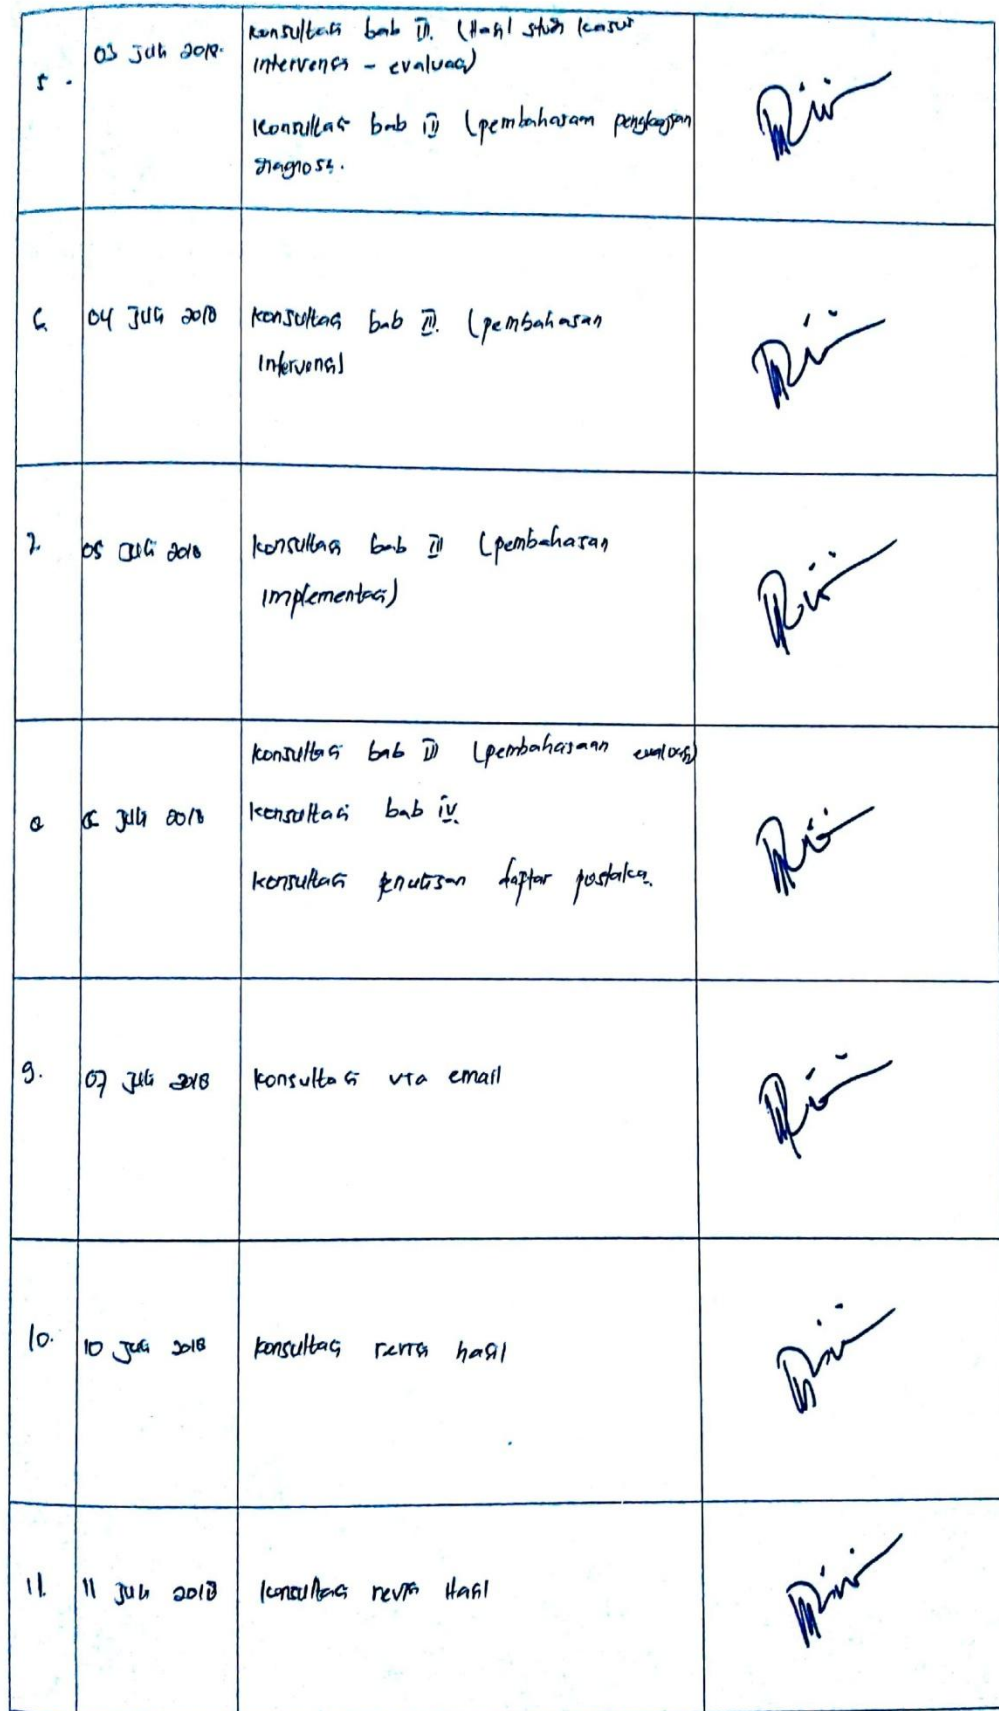 5.
03 Juli 2018.
Konsultasi bab III. (Hasil studi kasus
intervensi - evaluasi)
Konsultasi bab III (pembahasan pengkajian
diagnosa.
6.
04 Juli 2018
Konsultasi bab III. (pembahasan
Intervensi)
7.
05 Juli 2018
Konsultasi bab III (pembahasan
implementasi)
8
6 Juli 2018
Konsultasi bab III (pembahasaan evaluasi)
Konsultasi bab iv.
Konsultasi penulisan daftar pustaka.
9.
07 Juli 2018
Konsultasi via email
10.
10 Juli 2018
Konsultasi revisi hasil
11.
11 Juli 2018
Konsultasi revisi Hasil